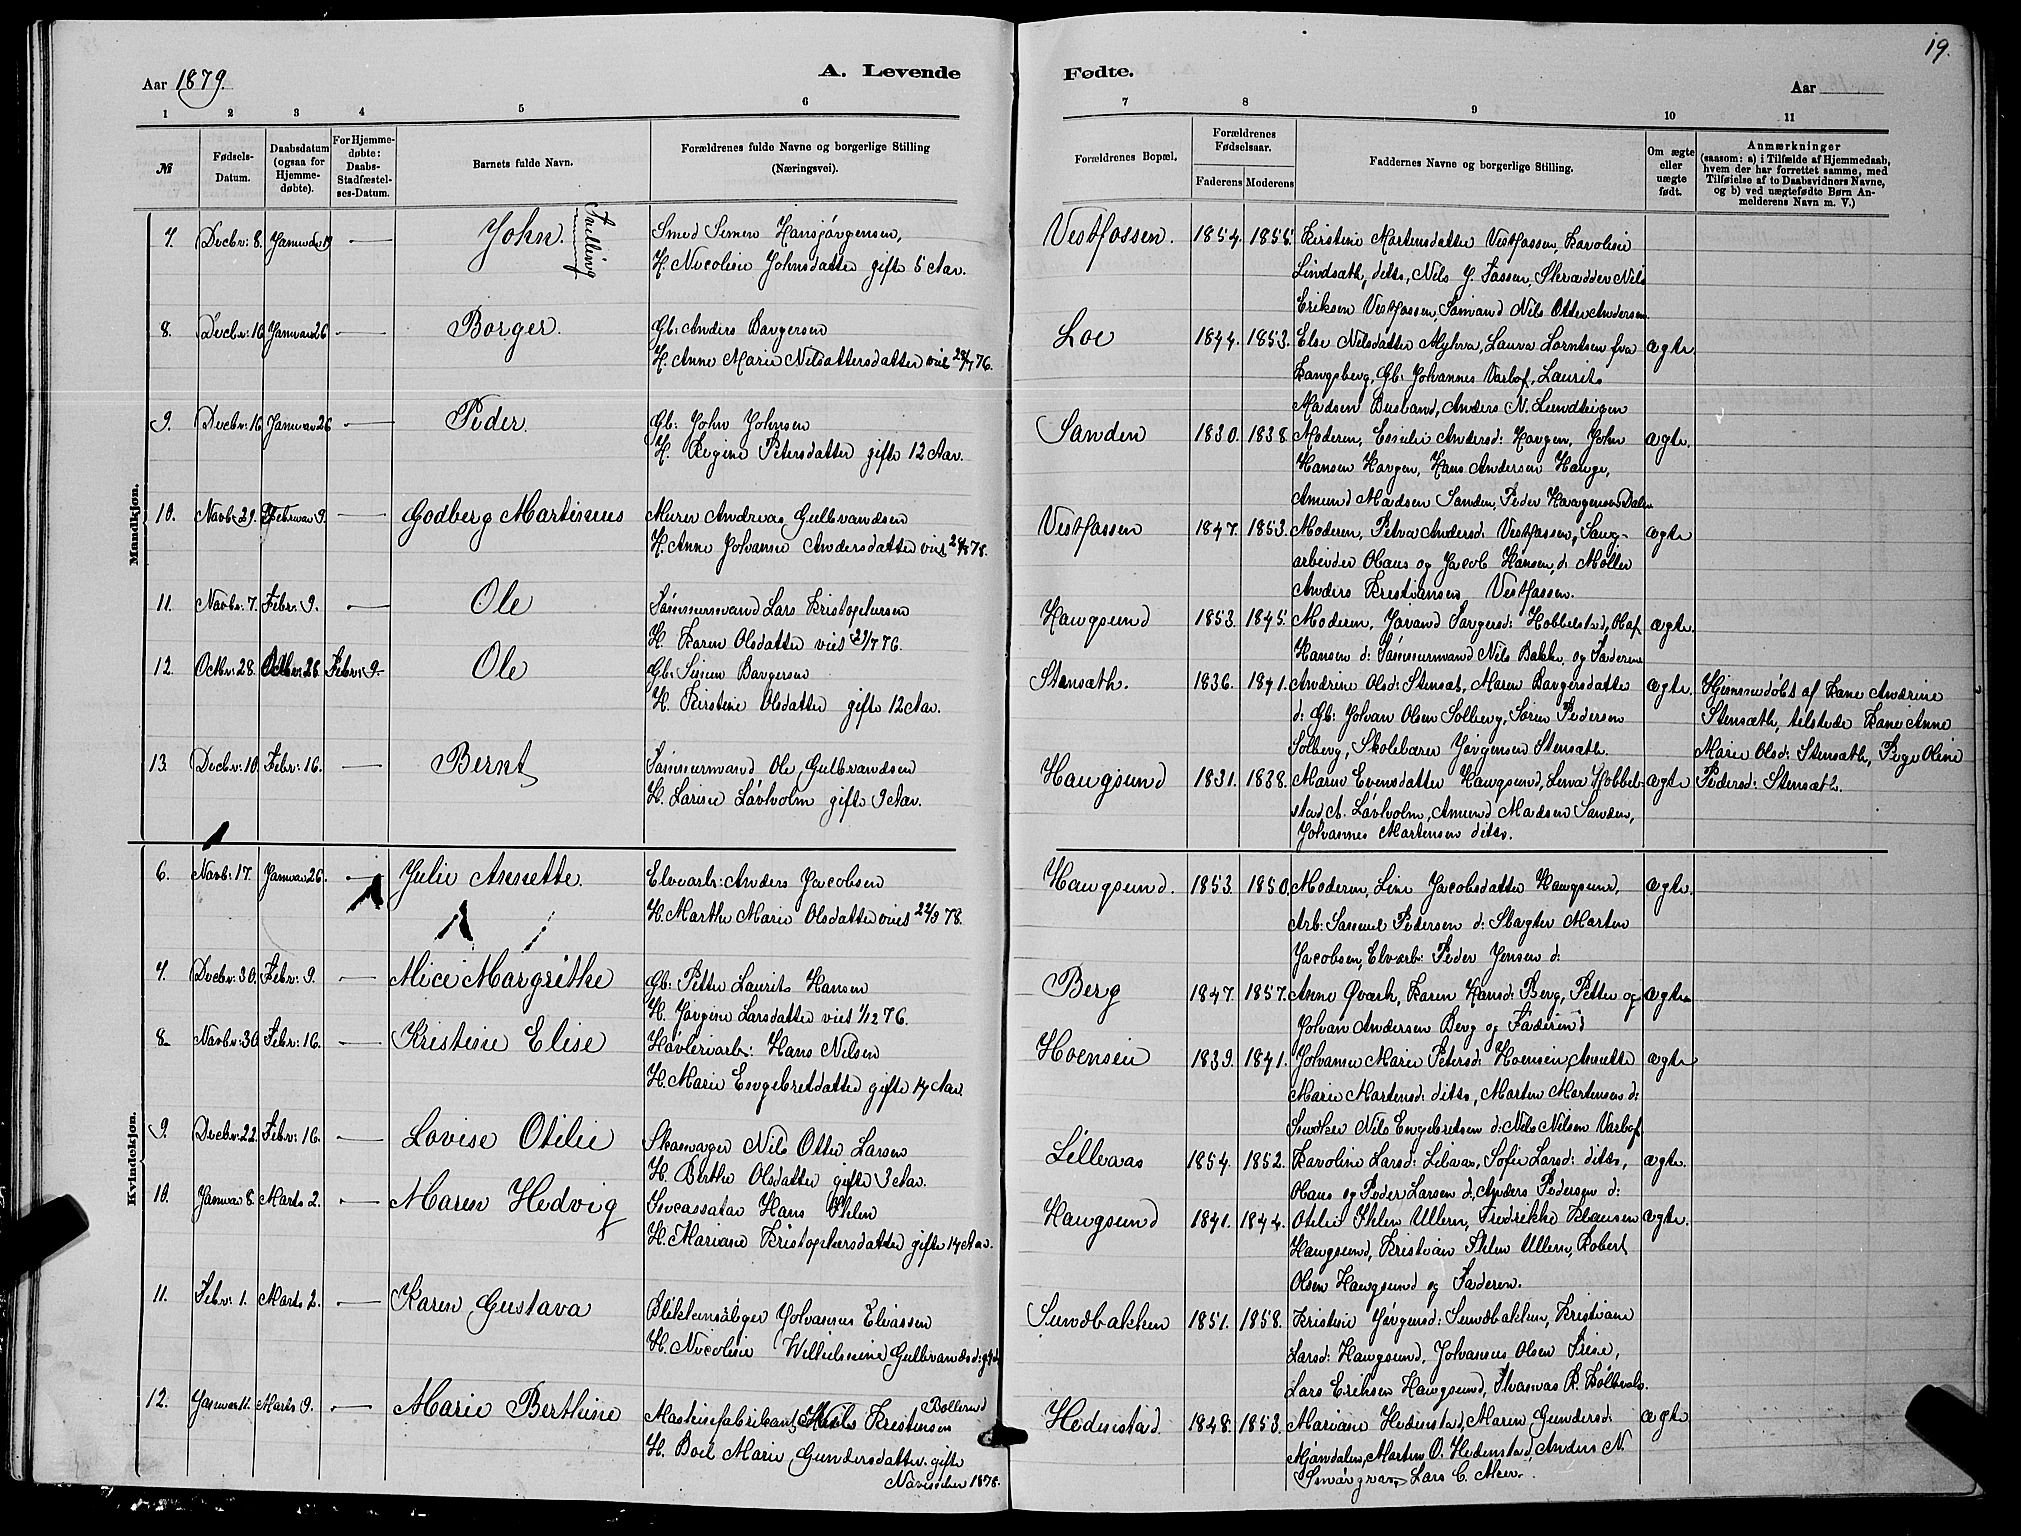 19.
Aar 1879.
A. Levende
Fødte.
Aar
1 2 3 4 5 6 7 8 9 10 11
№
Fødsels-
Datum.
Daabsdatum
(ogsaa for
Hjemme-
døbte).
For Hjemme-
døbte:
Daabs-
Stadfæstel-
ses-Datum.
Barnets fulde Navn.
Forældrenes fulde Navne og borgerlige Stilling
(Næringsvei).
Forældrenes Bopæl.
Forældrenes
Fødselsaar.
Faderens Moderens
Faddernes Navne og borgerlige Stilling.
Om ægte
eller
uægte
født.
Anmærkninger
(saasom: a) i Tilfælde af Hjemmedaab,
hvem der har forrettet samme, med
Tilføielse af to Daabsvidners Navne,
og b) ved uægtefødte Børn An-
melderens Navn m. V.)
Mandkjøn.
7. Decbr: 8. Januar 19 — John. Tvilling
Smed Simen Hansjørgensen,
H. Nicoline Johnsdatter gifte 5 Aar.
Vestfossen. 1854. 1855.
Kirstine Martensdatter Vestfossen, Karoline
Lindsæth, ditto, Nils J. Fossen, Skrædder Nils
Eriksen Vestfossen, Sømand Nils Otter Andersen
8. Decbr: 16. Januar 26 — Borger.
Gb: Anders Borgersen
H. Anne Marie Nilsattersdatter viet 28/7 76.
Loe 1844. 1853.
Else Nilsdatter Myhra, Laura Lorntsen fra
Kongsberg, Gb: Johannes Varlof, Laurits
Madsen Busland, Anders N. Lundteigen
ægte
9. Decbr: 16. Januar 26 — Peder.
Gb: John Johnsen
H. Regine Petersdatter gifte 12 Aar.
Sanden 1830. 1838.
Moderen, Emilie Andersd: Haugen, John
Hansen Haugen, Hans Andersen Hauge,
Amund Madsen Sanden, Peder Haagensen Dalen
ægte.
10. Novb: 29. Februar 9. — Godberg Martinius
Murer Andreas Gulbrandsen
H. Anne Johanne Andersdatter viet 78.
Vestfossen 1847. 1853.
Moderen, Petra Andersd: Vestfossen, Saug-
arbeider Olaus og Jacob Hansen, d: Møller
Anders Kristiansen, Vestfossen.
ægte
11. Novbr: 7. Febr: 9. — Ole
Tømmermand Lars Kristophersen
H. Karen Olsdatter viet 29/7 76.
Haugsund 1853. 1845.
Moderen, Jørand Torgersd: Hobbelstad, Olaf
Hansen d: Tømmermand Nils Bakke og Faderen
ægte.
12. Octbr: 28. Octbr: 28 Febr: 9. Ole
Gb: Simen Borgersen
H. Kirstine Olsdatter gifte 12 Aar.
Stensæth. 1836. 1841.
Andrine Olsd: Stensæt, Maren Borgersdatter
d: Gb: Johan Olsen Solberg, Søren Pedersen
Solberg, Skolelærer Jørgensen Stensæth.
ægte.
Hjemmedøbt af Kone Andrine
Stensæth, tilstede Kone Anne
Marie Olsd: Stensæth, Pige Oline
Pedersd: Stensæth.
13. Decbr: 10. Febr: 16. — Bernt
Tømmermand Ole Gulbrandsen
H. Larine Løvholm gifte 9 Aar.
Haugsund 1831. 1838.
Maren Evensdatter Haugsund, Lena Hobbel-
stad, A. Løvholm, Amund Madsen Sanden,
Johannes Martensen ditto.
ægte
Kvindekjøn.
6. Novb: 17. Januar 26. — Julie Annette.
Elvearb: Anders Jacobsen
H. Marthe Marie Olsdatter viet 22/9 78.
Haugsund. 1853. 1850.
Moderen, Line Jacobsdatter Haugsund,
Arb: Samuel Pedersen d: Slagter Marten
Jacobsen, Elvearb: Peder Jensen d:
ægte.
7. Decbr: 30. Febr: 9. — Alice Margrethe
Gb: Petter Laurits Hansen
H. Jørgine Larsdatter viet 1/12 76.
Berg 1847. 1857.
Anne Qvark, Karen Hansd: Berg, Petter og
Johan Andersen Berg og Faderen
ægte
8. Novbr: 30. Febr: 16. — Kristine Elise
Høvleriarb: Hans Nilsen
H. Marie Engebretdatter gifte 14 Aar.
Hoensein 1839. 1841.
Johanne Marie Petersd: Hoensein, Annette
Marie Martensd: ditto, Marten Martensen d:
Snedker Nils Engebretsen d: Nils Nilsen Varlof
ægte
9. Decbr: 22. Febr: 16. — Lovise Otilie
Skomager Nils Otter Larsen
H. Berthe Olsdatter gifte 3 Aar.
Lilleaas 1854. 1852.
Karoline Larsd: Lilaas, Sofie Larsd: ditto,
Olaus og Peder Larsen d, Anders Pedersen d:
ægte.
10. Januar 8. Marts 2. — Maren Hedvig
Incassator Hans Thlen
H. Mariane Kristophersdatter gifte 14 Aar.
Haugsund 1841. 1844.
Otilie Thlen Ullern, Fredrikke Klausen
Haugsund, Kristian Thlen Ullern, Robert
Olsen Haugsund og Faderen.
ægte.
11. Febr: 1. Marts 2. — Karen Gustava
Blikkenslager Johannes Eliassen
H. Nicoline Wilhelmine Gulbrandsd:
Sundbakken 1851. 1858.
Kristine Jørgensd: Sundbakken, Kristiane
Larsd: Haugsund, Johannes Olsen Friis,
Lars Eriksen Haugsund, Thomas P. Bølbevold.
12. Januar 11. Marts 9. — Marie Berthine
Maskinfabrikant Nils Kristensen Bollerud
H. Boel Marie Gundersdatter, gifte
November 1878.
Hedenstad. 1848. 1853.
Mariane Hedenstad, Maren Gundersd:
Mjøndalen, Marten O. Hedenstad, Anders N.
Smørgrav, Lars C. Moen.
ægte